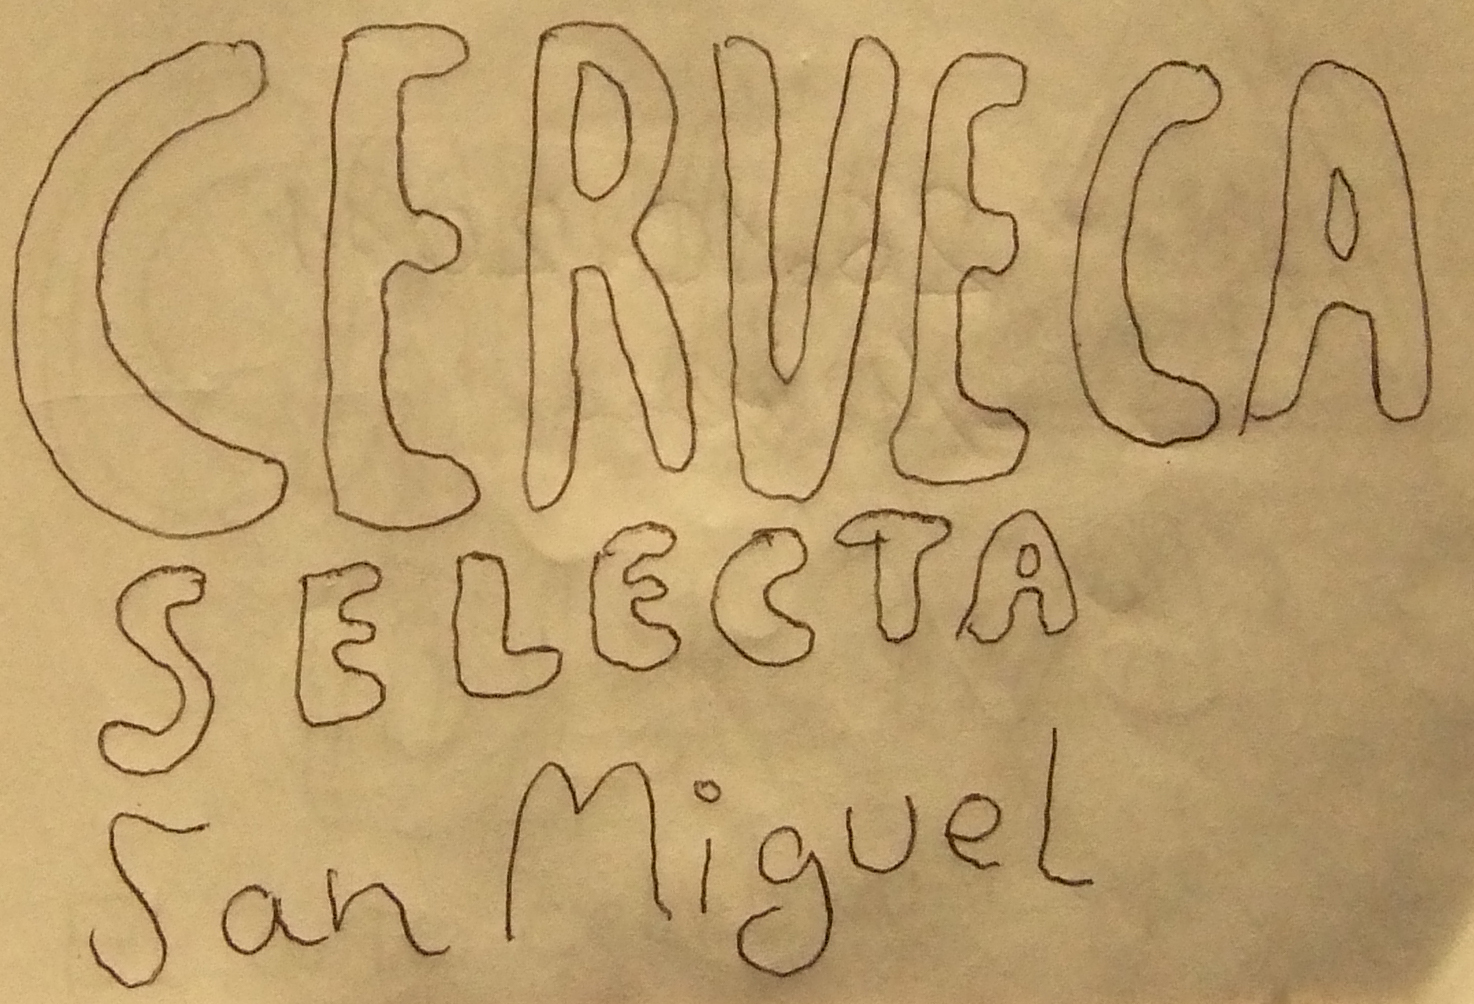 CERVECA
SELECTA
San Miguel